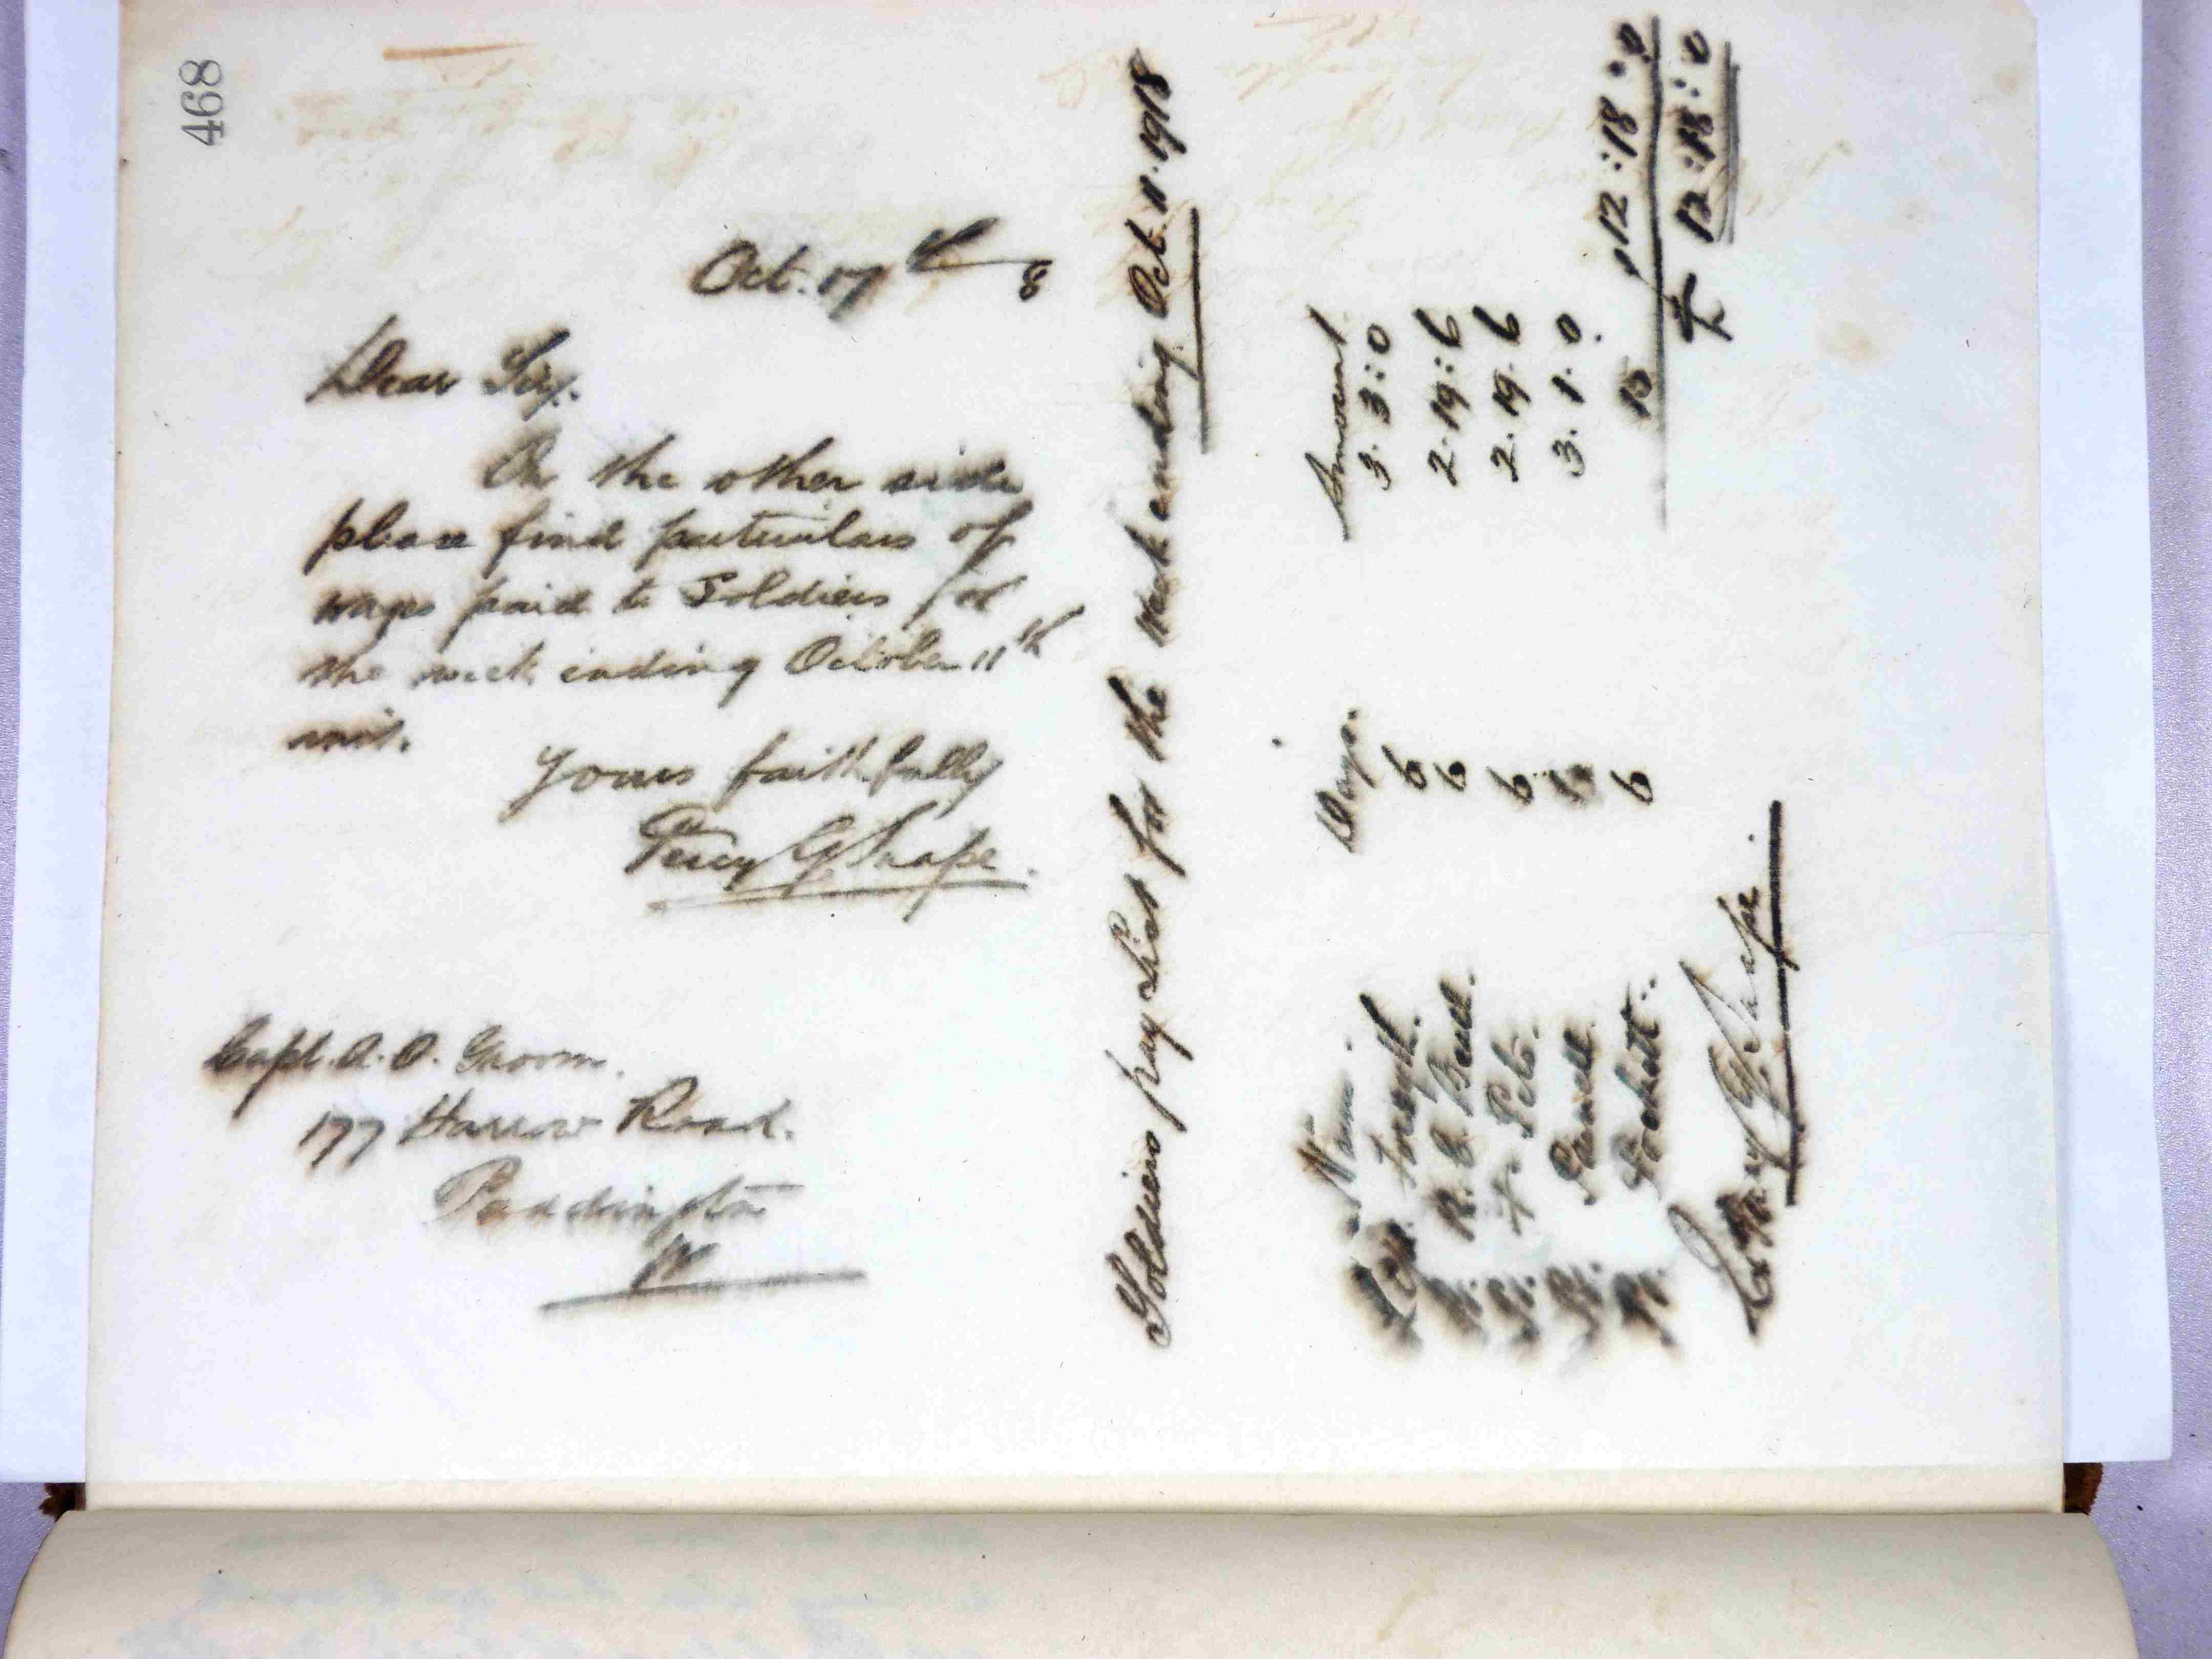 468
Oct. 17th 8
Dear Sir,
On the other side
please find particulars of
wages paid to Soldiers for
the week ending October 11th
inst.
Yours faithfully
Percy G. Snape.
Capt. A. O. Groom.
177 Harrow Road.
Paddington
W
Soldiers pay List for the week ending Oct. 11. 1918
Name. Days. Amount.
6 3. 3: 0
R. C. Bell. 6 2. 19: 6
6 2. 19. 6
Pte. Parnell.
Pte. Pockett.. 6
3. 1. 0.
15 12: 18: 0
£ 12: 18: 0
Percy G. Snape.